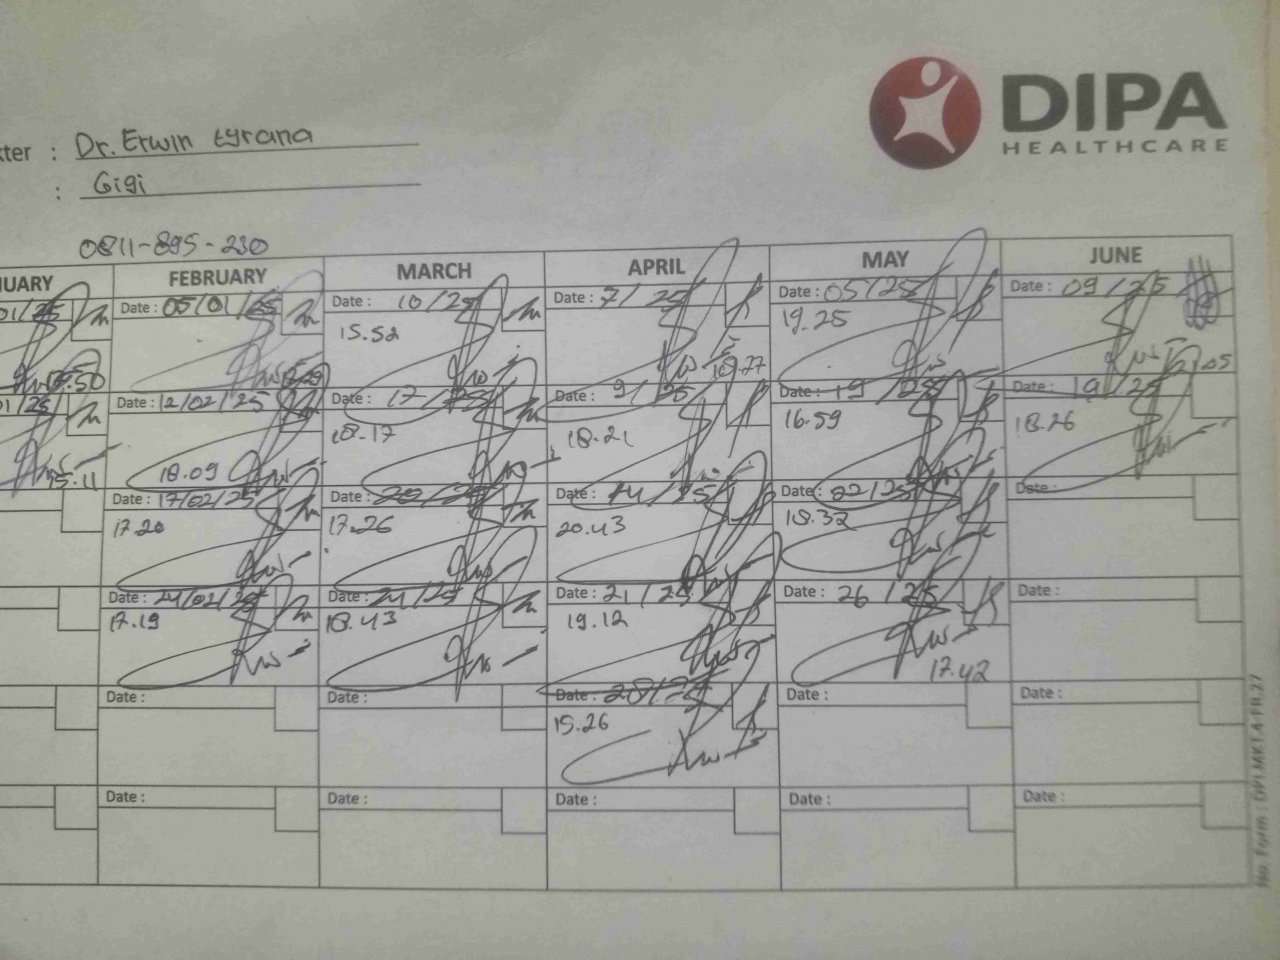 DIPA
HEALTHCARE
kter : Dr. Erwin tyrana
: Gigi
0811-895-230
NUARY FEBRUARY MARCH APRIL MAY JUNE
01/25 Date : 05/01/25 Date : 10/25 Date : 7/25 Date : 05/25 Date : 09/25
15.52 19.25
01/25 Date : 12/02/25 Date : 17/25 Date : 9/25 Date : 19/25 Date : 19/25
15.11 18.09 18.17 18.21 16.59 18.26
Date : 17/02/25 Date : 20/25 Date : 14/25 Date : 22/25 Date :
17.20 17.26 20.43 18.32
Date : 24/02/25 Date : 24/25 Date : 21/25 Date : 26/25 Date :
17.19 18.43 19.12 17.42
Date : Date : Date : 28/25 Date : Date :
15.26
Date : Date : Date : Date : Date :